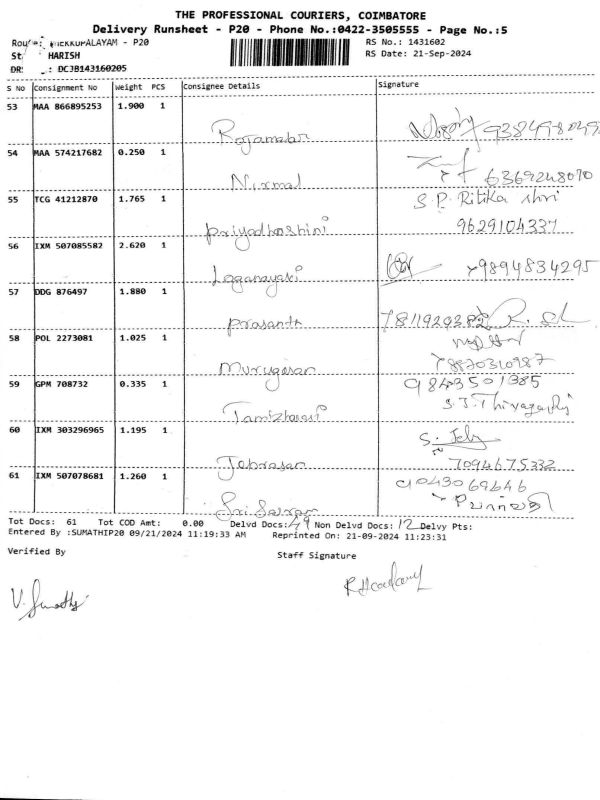 THE PROFESSIONAL COURIERS, COIMBATORE
Delivery Runsheet - P20 - Phone No.:0422-3505555 - Page No.:5
RS No.: 1431602
HARISH
RS Date: 21-Sep-2024
DCJB143160205
S No Consignment No Weight PCS Consignee Details Signature
53 MAA 866895253 1.900 1
Rajamatar
54 MAA 574217682 0.250 1
Nirmal 6369248070
55 TCG 41212870 1.765 1 S.P. Ritika Shri
Priyadharshini 9629104337
56 IXM 507085582 2.620 1
Loganayaki 9894834295
57 DDG 876497 1.880 1
Prasanth
58 POL 2273081 1.025 1
Murugesan 8870310987
59 GPM 708732 0.335 1 9843501385
Tamizharasi
60 IXM 303296965 1.195 1
Jebrasan 7094675332
61 IXM 507078681 1.260 1 9043069646
Tot Docs: 61 Tot COD Amt: 0.00 Delvd Docs: 49 Non Delvd Docs: 12 Delvy Pts:
Entered By :SUMATHIP20 09/21/2024 11:19:33 AM Reprinted On: 21-09-2024 11:23:31
Verified By Staff Signature
V. Sumathi